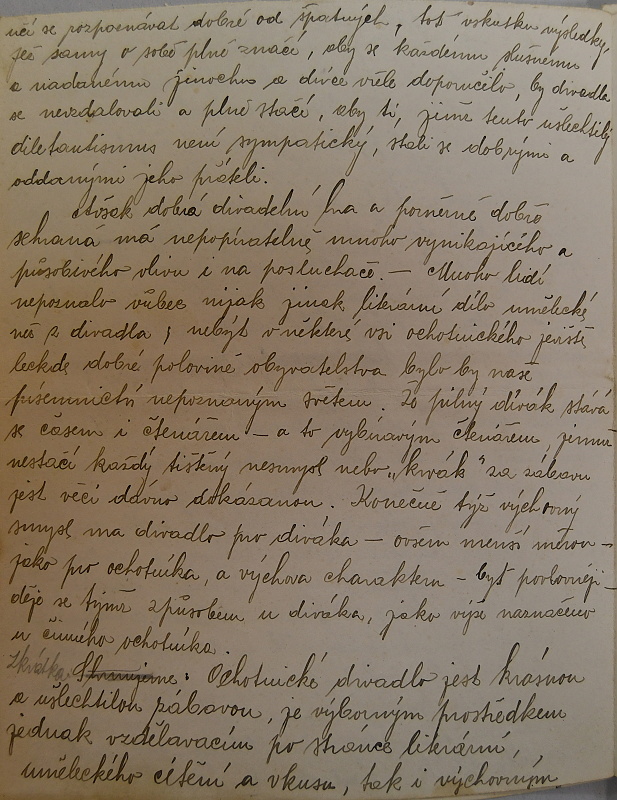 učí se rozpoznávat dobré od špatných, toť vskutku výsledky,
jež samy o sobě plně značí, aby se každému slušnému
a nadanému jinochu a dívce vřele doporučilo, by divadla
se nevzdalovali a plně stačí, aby ti, jimž tento ušlechtilý
diletantismus není sympatický, stali se dobrými a
oddanými jeho přáteli.
Avšak dobrá divadelní hra a poměrně dobře
sehraná má nepopíratelně mnoho vynikajícího a
působivého vlivu i na posluchače. — Mnoho lidí
nepoznalo vůbec nijak jinak literární dílo umělecké
než z divadla; nebýt v některé vsi ochotnického jeviště
leckde dobré polovině obyvatelstva bylo by naše
písemnictví nepoznaným světem. Že pilný divák stává
se časem i čtenářem — a to vybíravým čtenářem, jemuž
nestačí každý tištěný nesmysl nebo „kvák" za zábavu
jest věcí dávno dokázanou. Konečně týž výchovný
smysl má divadlo pro diváka — ovšem menší měrou —
jako pro ochotníka, a výchova charakteru — byť povlovněji -
děje se týmž způsobem u diváka, jako výše naznačeno
u činného ochotníka.
Zkrátka: Ochotnické divadlo jest krásnou
a ušlechtilou zábavou, je výborným prostředkem
jednak vzdělavacím po stránce literární,
uměleckého cítění a vkusu, tak i výchovným